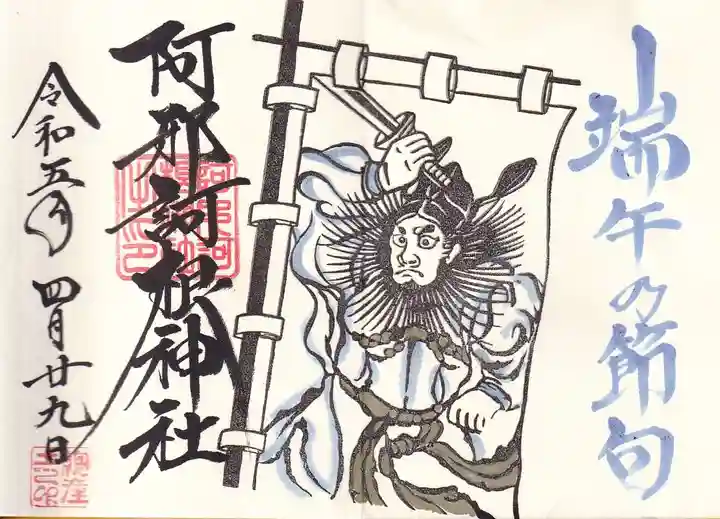 端午の節句
阿那訶根神社
令和五年
四月廿九日